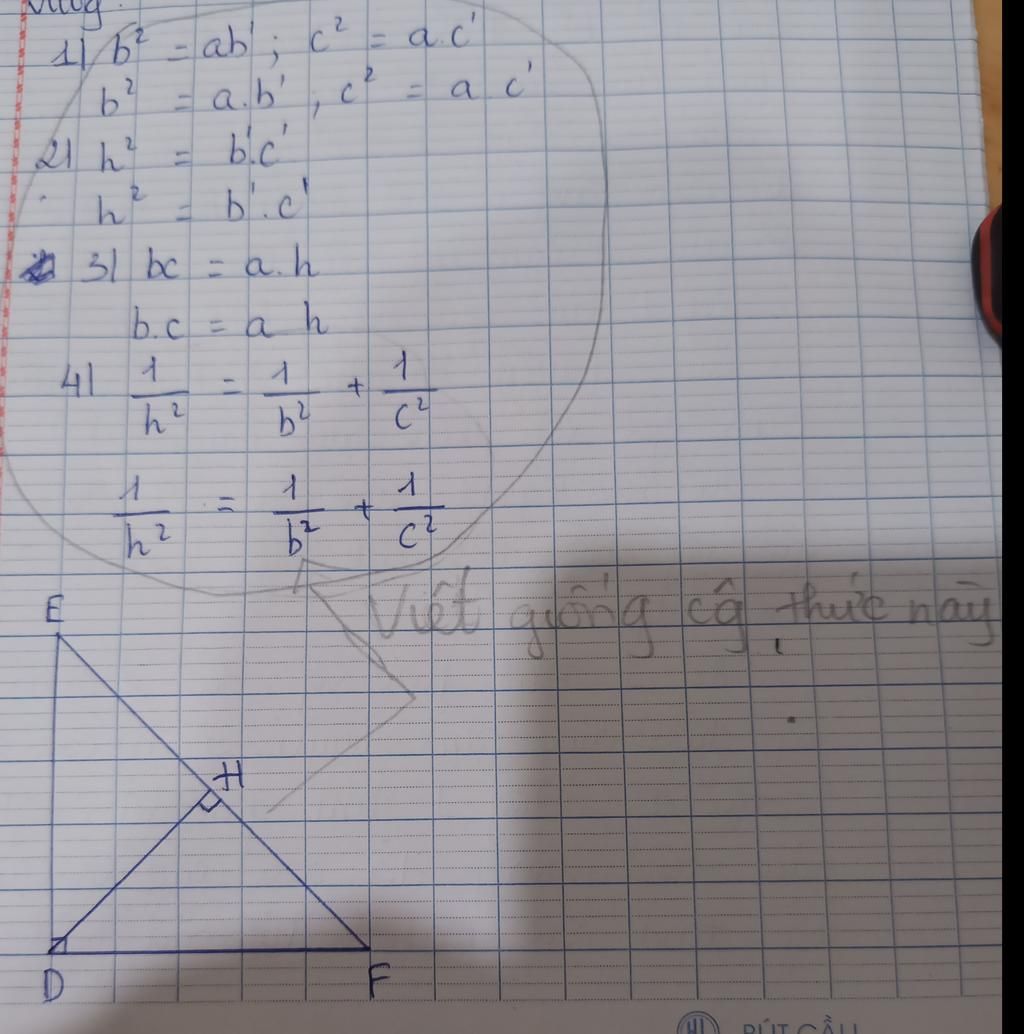 vuông
1) b² = ab' ; c² = a.c'
b² = a.b' , c² = a c'
2) h² = b'.c'
h² = b'.c'
3) bc = a.h
b.c = a h
4) 1/h² = 1/b² + 1/c²
1/h² = 1/b² + 1/c²
Viết giống cg thức này
E
H
D F
BÚT CẦU